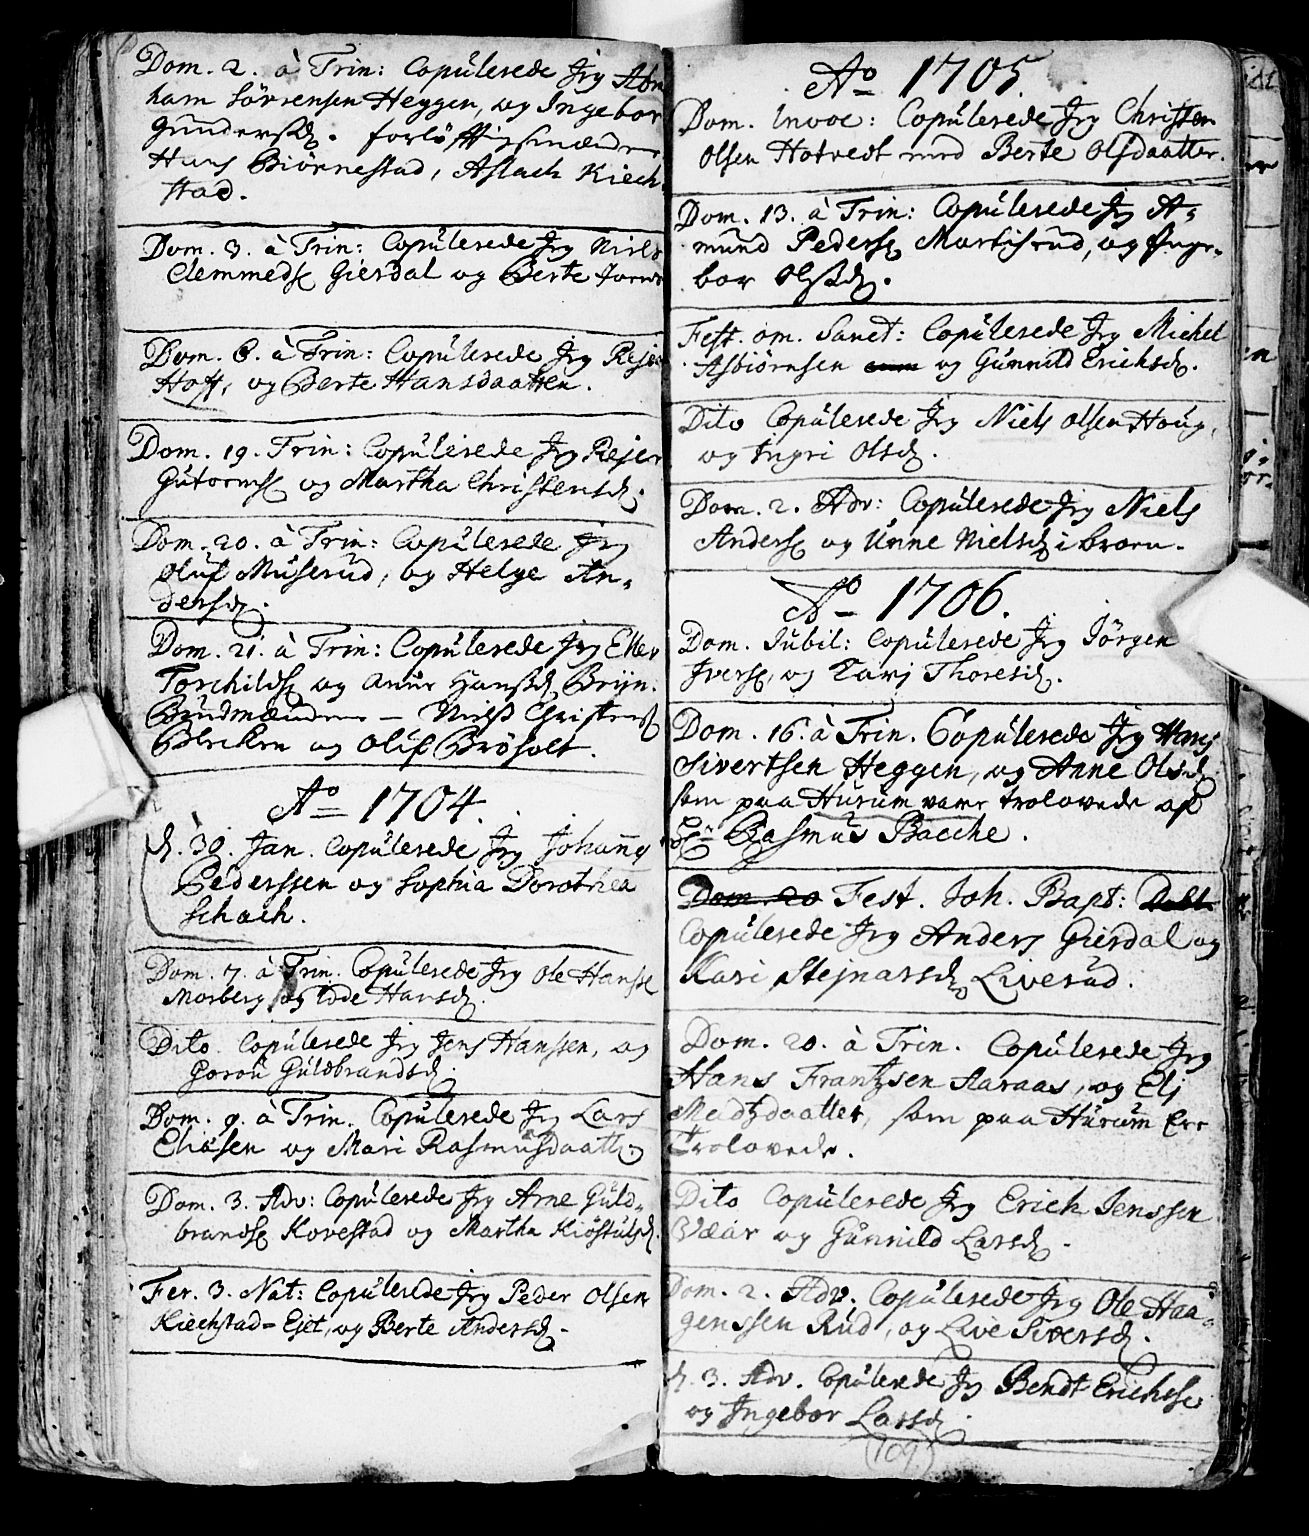 Dom. 2. à Trin: Copulerede Jeg Abra
ham Sörrensen Heggen, og Ingebor
Gundersd. forlöfftigsmænden
Hans Biörnestad, Aslach Kiech
stad.
Dom. 3. à Trin: Copulerede Jeg Niels
Clemmeds Gierdal og Berte
Dom. 6. à Trin: Copulerede Jeg Rejer
Hoff, og Berte Hansdaatter.
Dom. 19. Trin: Copulerede Jeg Rejer
Gutorms og Martha Christensd.
Dom. 20. à Trin: Copulerede Jeg
Oluf Muserud, og Helge An-
dersd.
Dom. 21. à Trin: Copulerede Jeg Ellev
Torchilds og Anne Hansd Brÿn.
Brudmændene – Nielß Christens
Blecken og Oluf Bröholt.
Ao 1704.
d. 30. Jan. Copulerede Jeg Johannes
Pederssen og Sophia Dorothea
Schach.
Dom. 7. à Trin. Copulerede Jeg Ole Hanss
Morberg og Edde Hansd.
Dito. Copulerede Jeg Jens Hanssen, og
Goron Guldbrandsd.
Dom. 9. à Trin. Copulerede Jeg Lars
Eliasen og Mari Rasmusdaatt.
Dom. 3. Adv: Copulerede Jeg Arne Guld-
brands Kovestad og Martha Kiöstulsd.
Fer. 3. Nat: Copulerede Jeg Peder Olsen
Kiechstad-Ejet, og Berte Andersd.
Ao 1705.
Dom. Invoc: Copulerede Jeg Christen
Olsen Hotvedt med Berte Olsdaatter.
Dom. 13. à Trin: Copulerede Jeg A-
mund Peders Martisrud, og Inge-
bor Olsd.
Fest. om. Sanct: Copulerede Jeg Michel
Asbiörnsen og Gunnild Erichsd.
Dito Copulerede Jeg Niels Olsen Houg,
og Ingri Olsd.
Dom. 2. Adv: Copulerede Jeg Niels
Anders og Unne Nielsd i braen.
Ao 1706.
Dom. Jubil: Copulerede Jeg Jörgen
Ivers, og Tarj Thoresd.
Dom. 16. à Trin. Copulerede Jeg Hans
Sivertsen Heggen, og Anne Olsd
som paa Hurum vare trolovede af
Hr Rasmus Bacche.
Dom. 20 Fest. Joh. Bapt:
Copulerede Jeg Anders Gierdal og
Kari Stejnarsd Liverud.
Dom. 20. à Trin. Copulerede Jeg
Hans Frantzsen Aaraas, og Eli
Madtzdaatter, som paa Hurum Ere
Trolovede.
Dito Copulerede Jeg Erich Jenssen
Væar og Gunnild Larsd.
Dom. 2. Adv. Copulerede Jeg Ole Haa-
genssen Rud, og Live Siversd.
d. 3. Adv. Copulerede Jeg Bendt Erichss
og Ingebor Larsd.
(109.)